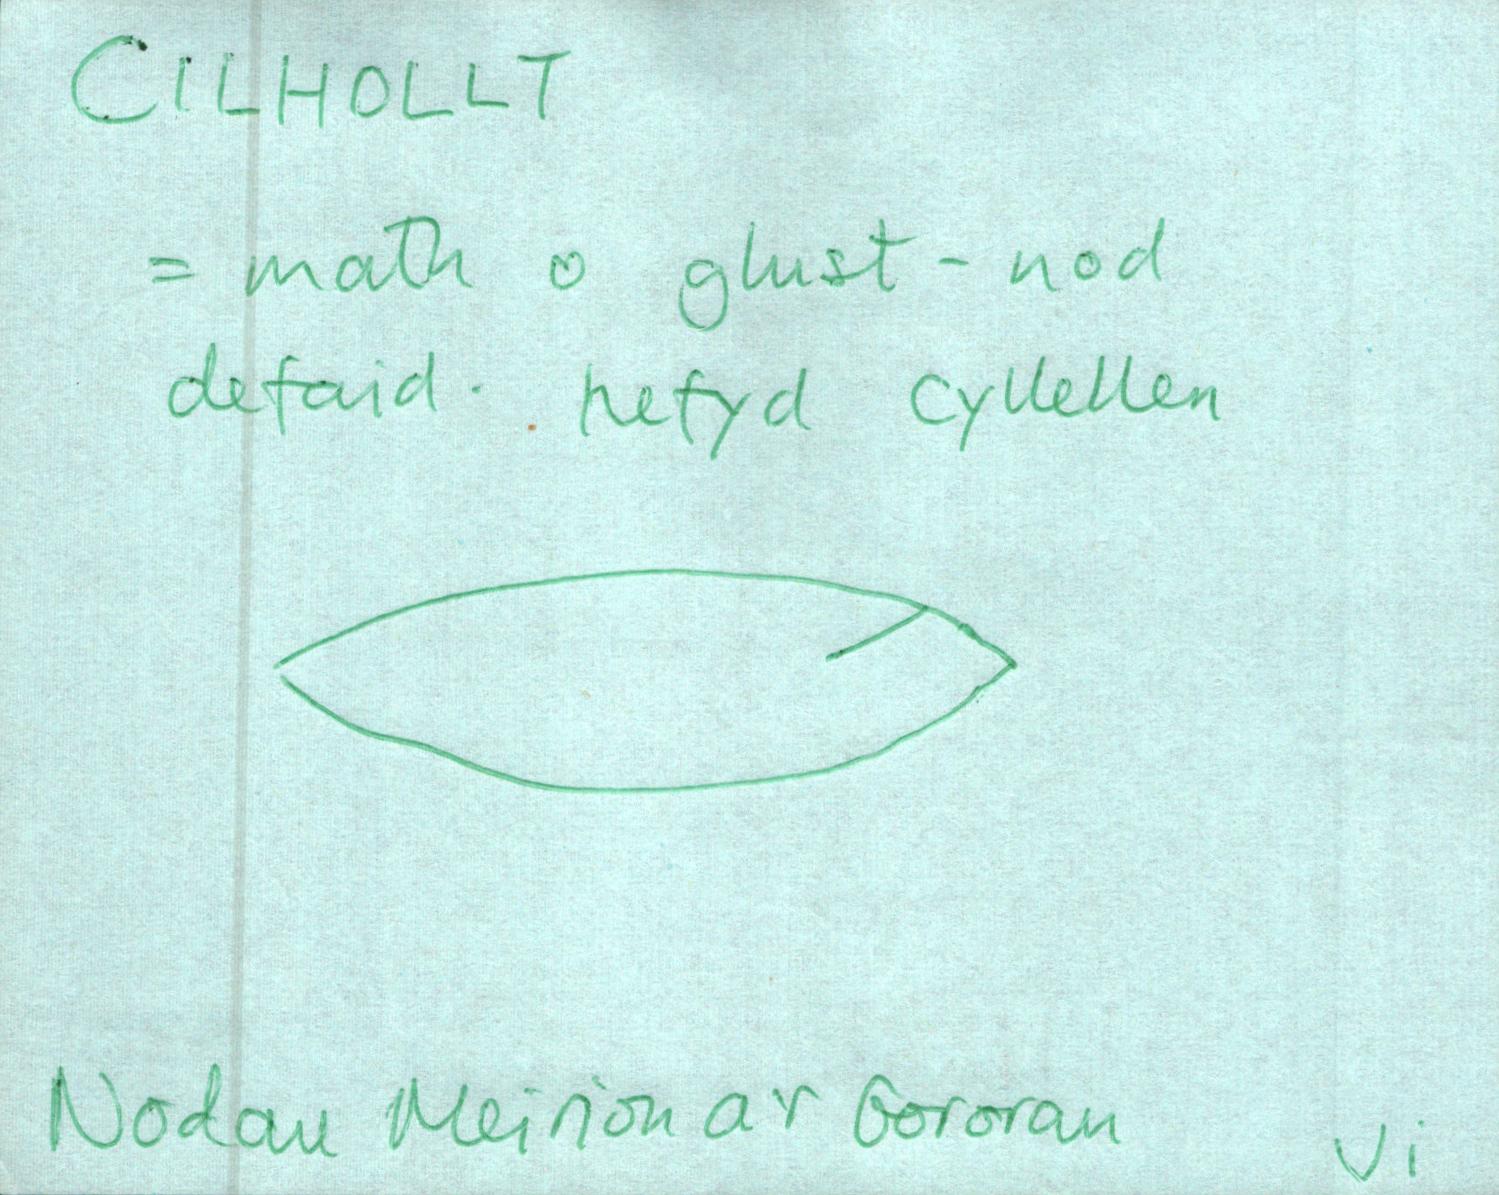 CILHOLLT
= math o glust-nod
defaid. hefyd cyllellen
Nodau Meirion a'r Gororau
vi